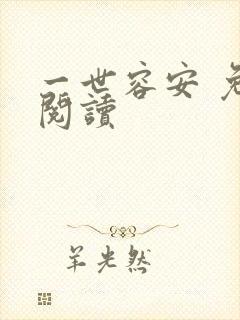 一世容安 免
閱讀
羊光然